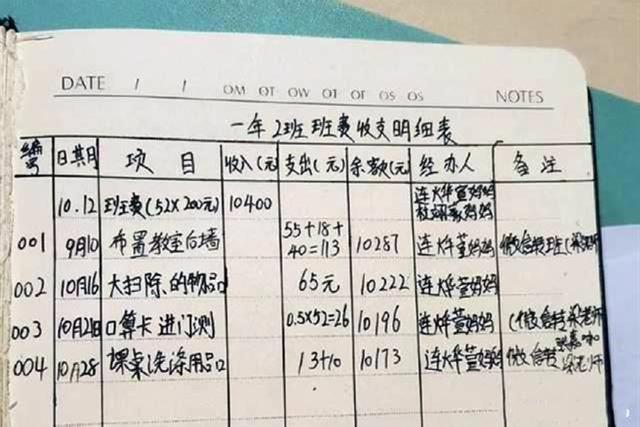 DATE / / OM OT OW OT OF OS OS NOTES
一年2班班费收支明细表
编号 日期 项目 收入(元) 支出(元) 余额(元) 经办人 备注
10.12 班费(52×200元) 10400 连烨萱妈妈
妈妈
001 9月10 布置教室后墙 55+18+
40=113 10287 连烨萱妈妈 微信转班班
002 10月16 大扫除的物品 65元 10222 连烨萱妈妈
003 10月21日 口算卡进门测 0.5×52=26 10196 连烨萱妈妈 (微信转梁老师
004 10月28 课桌洗涤用品 13+10 10173 连烨萱妈妈 微信转
梁老师